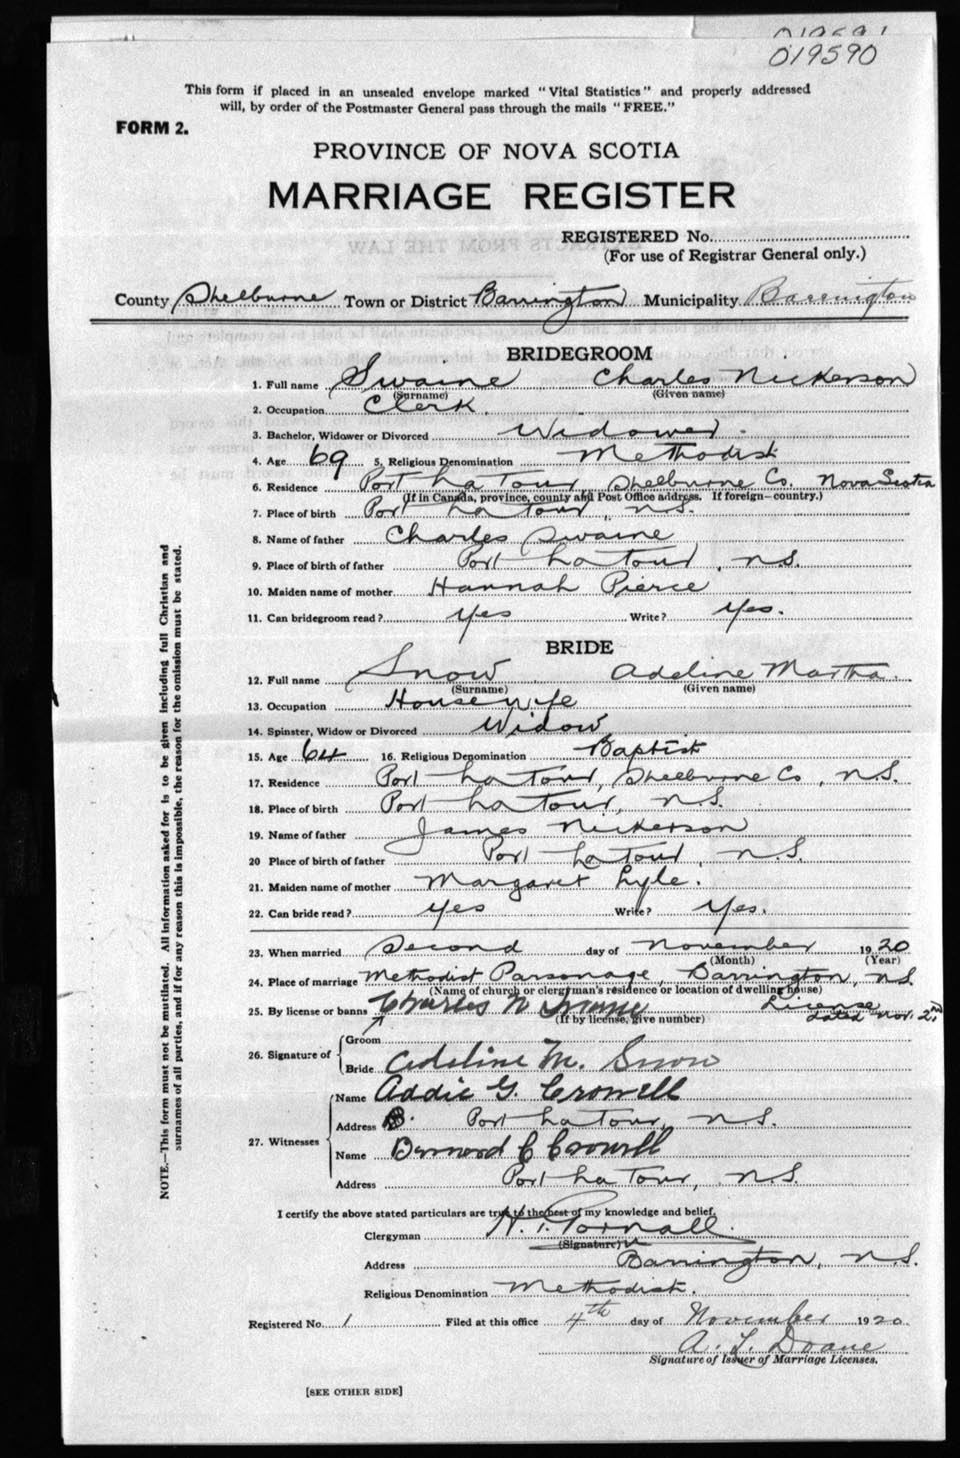 019591
019590
This form if placed in an unsealed envelope marked "Vital Statistics" and properly addressed
will, by order of the Postmaster General pass through the mails "FREE."
FORM 2.
PROVINCE OF NOVA SCOTIA
MARRIAGE REGISTER
REGISTERED No.
(For use of Registrar General only.)
County Shelburne Town or District Barrington Municipality Barrington
BRIDEGROOM
1. Full name Swaine Charles Nickerson
(Surname) (Given name)
2. Occupation Clerk.
3. Bachelor, Widower or Divorced Widower.
4. Age 69 5. Religious Denomination Methodist
6. Residence Port La Tour Shelburne Co. Nova Scotia
(If in Canada, province, county and Post Office address. If foreign—country.)
7. Place of birth Port La Tour, N.S.
8. Name of father Charles Swaine
9. Place of birth of father Port La Tour, N.S.
10. Maiden name of mother Hannah Pierce
11. Can bridegroom read? Yes Write? Yes.
BRIDE
12. Full name Snow Adeline Martha.
(Surname) (Given name)
13. Occupation Housewife
14. Spinster, Widow or Divorced Widow
15. Age 64 16. Religious Denomination Baptist
17. Residence Port La Tour, Shelburne Co, N.S.
18. Place of birth Port La Tour, N.S.
19. Name of father James Nickerson
20 Place of birth of father Port La Tour, N.S.
21. Maiden name of mother Margaret Lyle.
22. Can bride read? Yes Write? Yes.
23. When married Second day of November 1920
(Month) (Year)
24. Place of marriage Methodist Parsonage, Barrington, N.S.
(Name of church or clergyman's residence or location of dwelling house)
25. By license or banns Charles N Swaine License
(If by license, give number) dated Nov. 2nd
26. Signature of
Groom
Bride Adeline M. Snow
27. Witnesses
Name Addie G. Crowell
Address Port La Tour, N.S.
Name Bernard C Crowell
Address Port La Tour, N.S.
I certify the above stated particulars are true to the best of my knowledge and belief.
Clergyman H. T. Pornall.
(Signature)
Address Barrington, N.S.
Religious Denomination Methodist.
Registered No. 1 Filed at this office 4th day of November 1920.
A. L. Doane
Signature of Issuer of Marriage Licenses.
[SEE OTHER SIDE]
NOTE.—This form must not be mutilated. All information asked for is to be given including full Christian and
surnames of all parties, and if for any reason this is impossible, the reason for the omission must be stated.